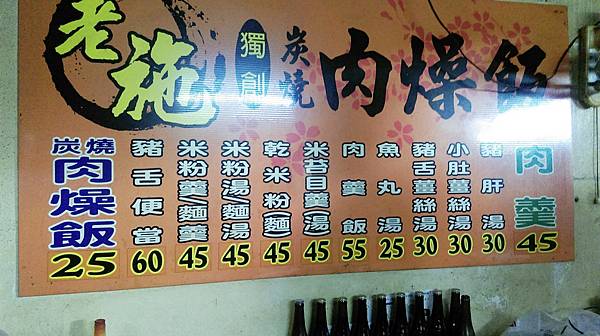 老施 獨創 炭燒 肉燥飯
炭燒肉燥飯 25
豬舌便當 60
米粉羹/麵羹 45
米粉湯/麵湯 45
乾米粉(麵) 45
米苔目羹(湯) 45
肉羹飯 55
魚丸湯 25
豬舌薑絲湯 30
小肚薑絲湯 30
豬肝湯 30
肉羹 45